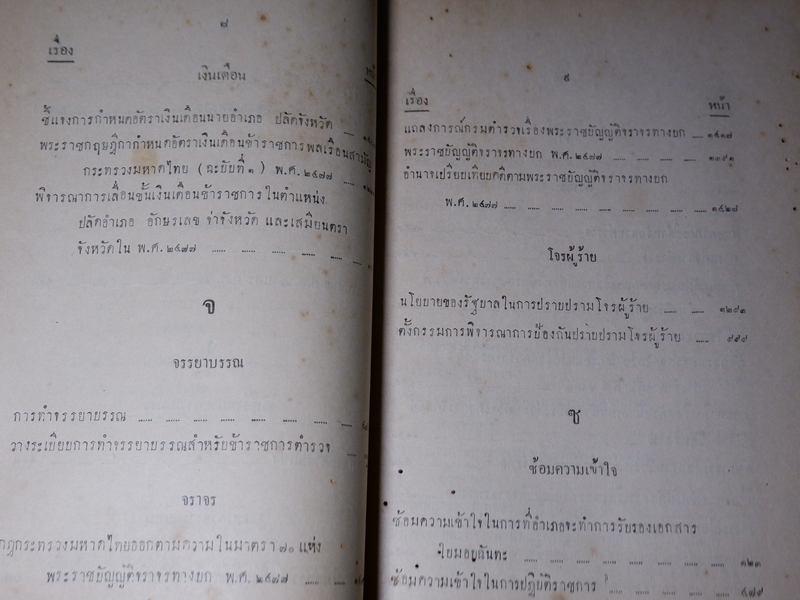 ๘
เรื่อง
เงินเดือน
ชี้แจงการกำหนดอัตราเงินเดือนนายอำเภอ ปลัดจังหวัด
พระราชกฤษฎีกากำหนดอัตราเงินเดือนข้าราชการพลเรือนสามัญ
กระทรวงมหาดไทย (ฉะบับที่ ๑) พ.ศ. ๒๔๗๗
พิจารณาการเลื่อนชั้นเงินเดือนข้าราชการในตำแหน่ง
ปลัดอำเภอ อักษรเลข จ่าจังหวัด และเสมียนตรา
จังหวัดใน พ.ศ. ๒๔๗๗
จ
จรรยาบรรณ
การทำจรรยาบรรณ
วางระเบียบการทำจรรยาบรรณสำหรับข้าราชการตำรวจ
จราจร
กฎกระทรวงมหาดไทยออกตามความในมาตรา ๗๐ แห่ง
พระราชบัญญัติจราจรทางบก พ.ศ. ๒๔๗๗
๙
เรื่อง หน้า
แถลงการณ์กรมตำรวจเรื่องพระราชบัญญัติจราจรทางบก ๑๔๑๗
พระราชบัญญัติจราจรทางบก พ.ศ. ๒๔๗๗
อำนาจเปรียบเทียบคดีตามพระราชบัญญัติจราจรทางบก
พ.ศ. ๒๔๗๗ ๑๔๒๘
โจรผู้ร้าย
นโยบายของรัฐบาลในการปราบปรามโจรผู้ร้าย
ตั้งกรรมการพิจารณาการป้องกันปราบปรามโจรผู้ร้าย
ซ
ซ้อมความเข้าใจ
ซ้อมความเข้าใจในการที่อำเภอจะทำการรับรองเอกสาร
ใบมอบฉันทะ ๑๒๓
ซ้อมความเข้าใจในการปฏิบัติราชการ